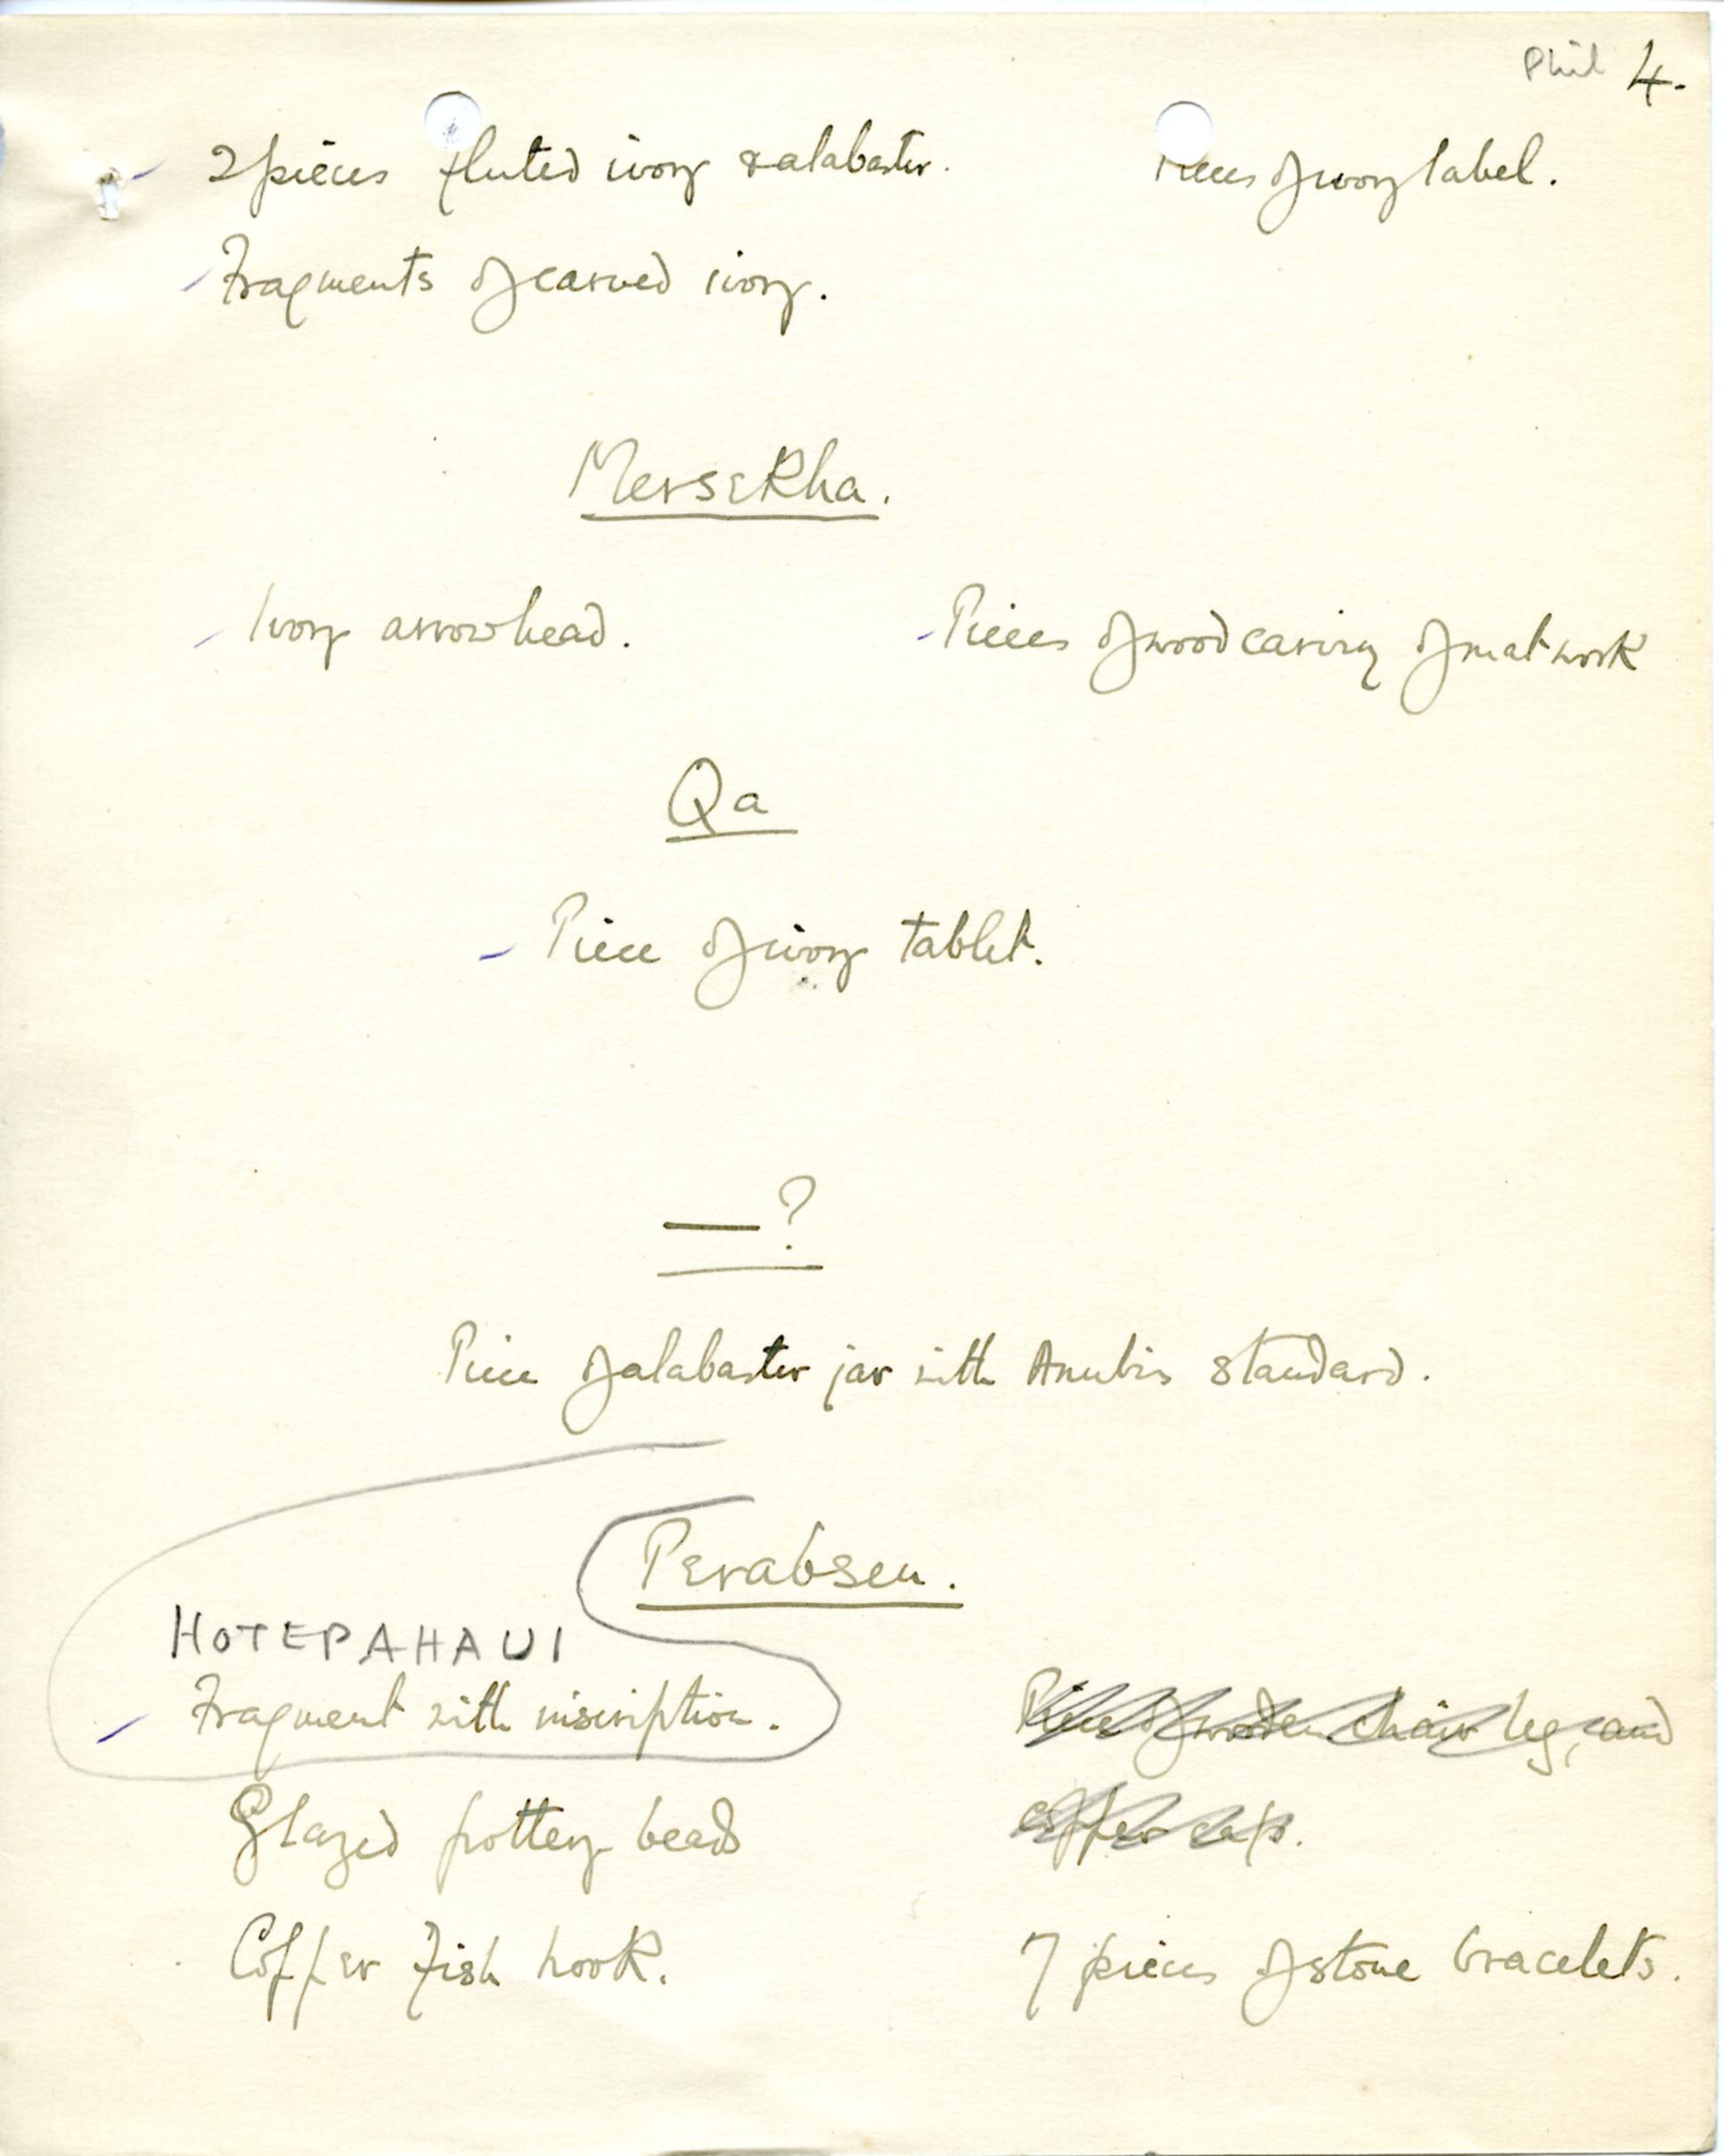 Phil 4.
2 pieces fluted ivory & alabaster. Pieces of ivory label.
Fragments of carved ivory.
Mersekha.
Ivory arrowhead. Pieces of wood carving of mat work
Qa
Piece of ivory tablet.
—?
Piece of alabaster jar with Anubis standard.
Perabsen.
HOTEPAHAUI
Fragment with inscription. Piece of wooden chair leg, and
Glazed pottery beads copper cap.
Copper fish hook. 7 pieces of stone bracelets.